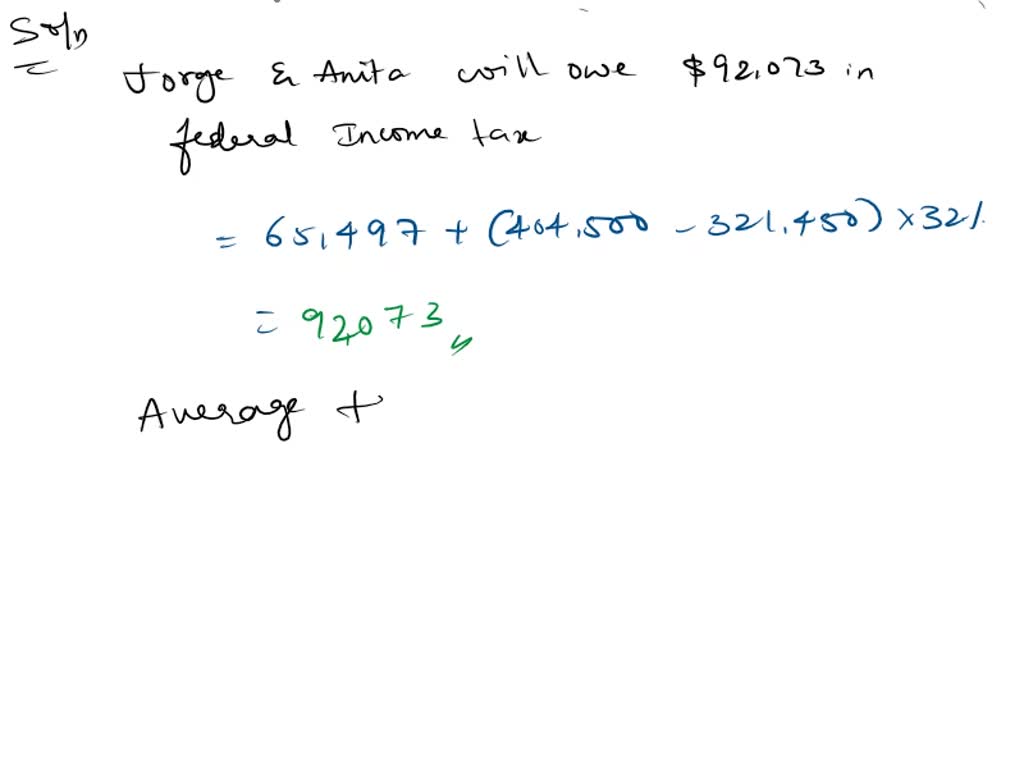 Soln
Jorge & Anita will owe $92,073 in
federal Income tax
= 65,497 + (404,500 - 321,450) × 32%
= 92,073
Average t